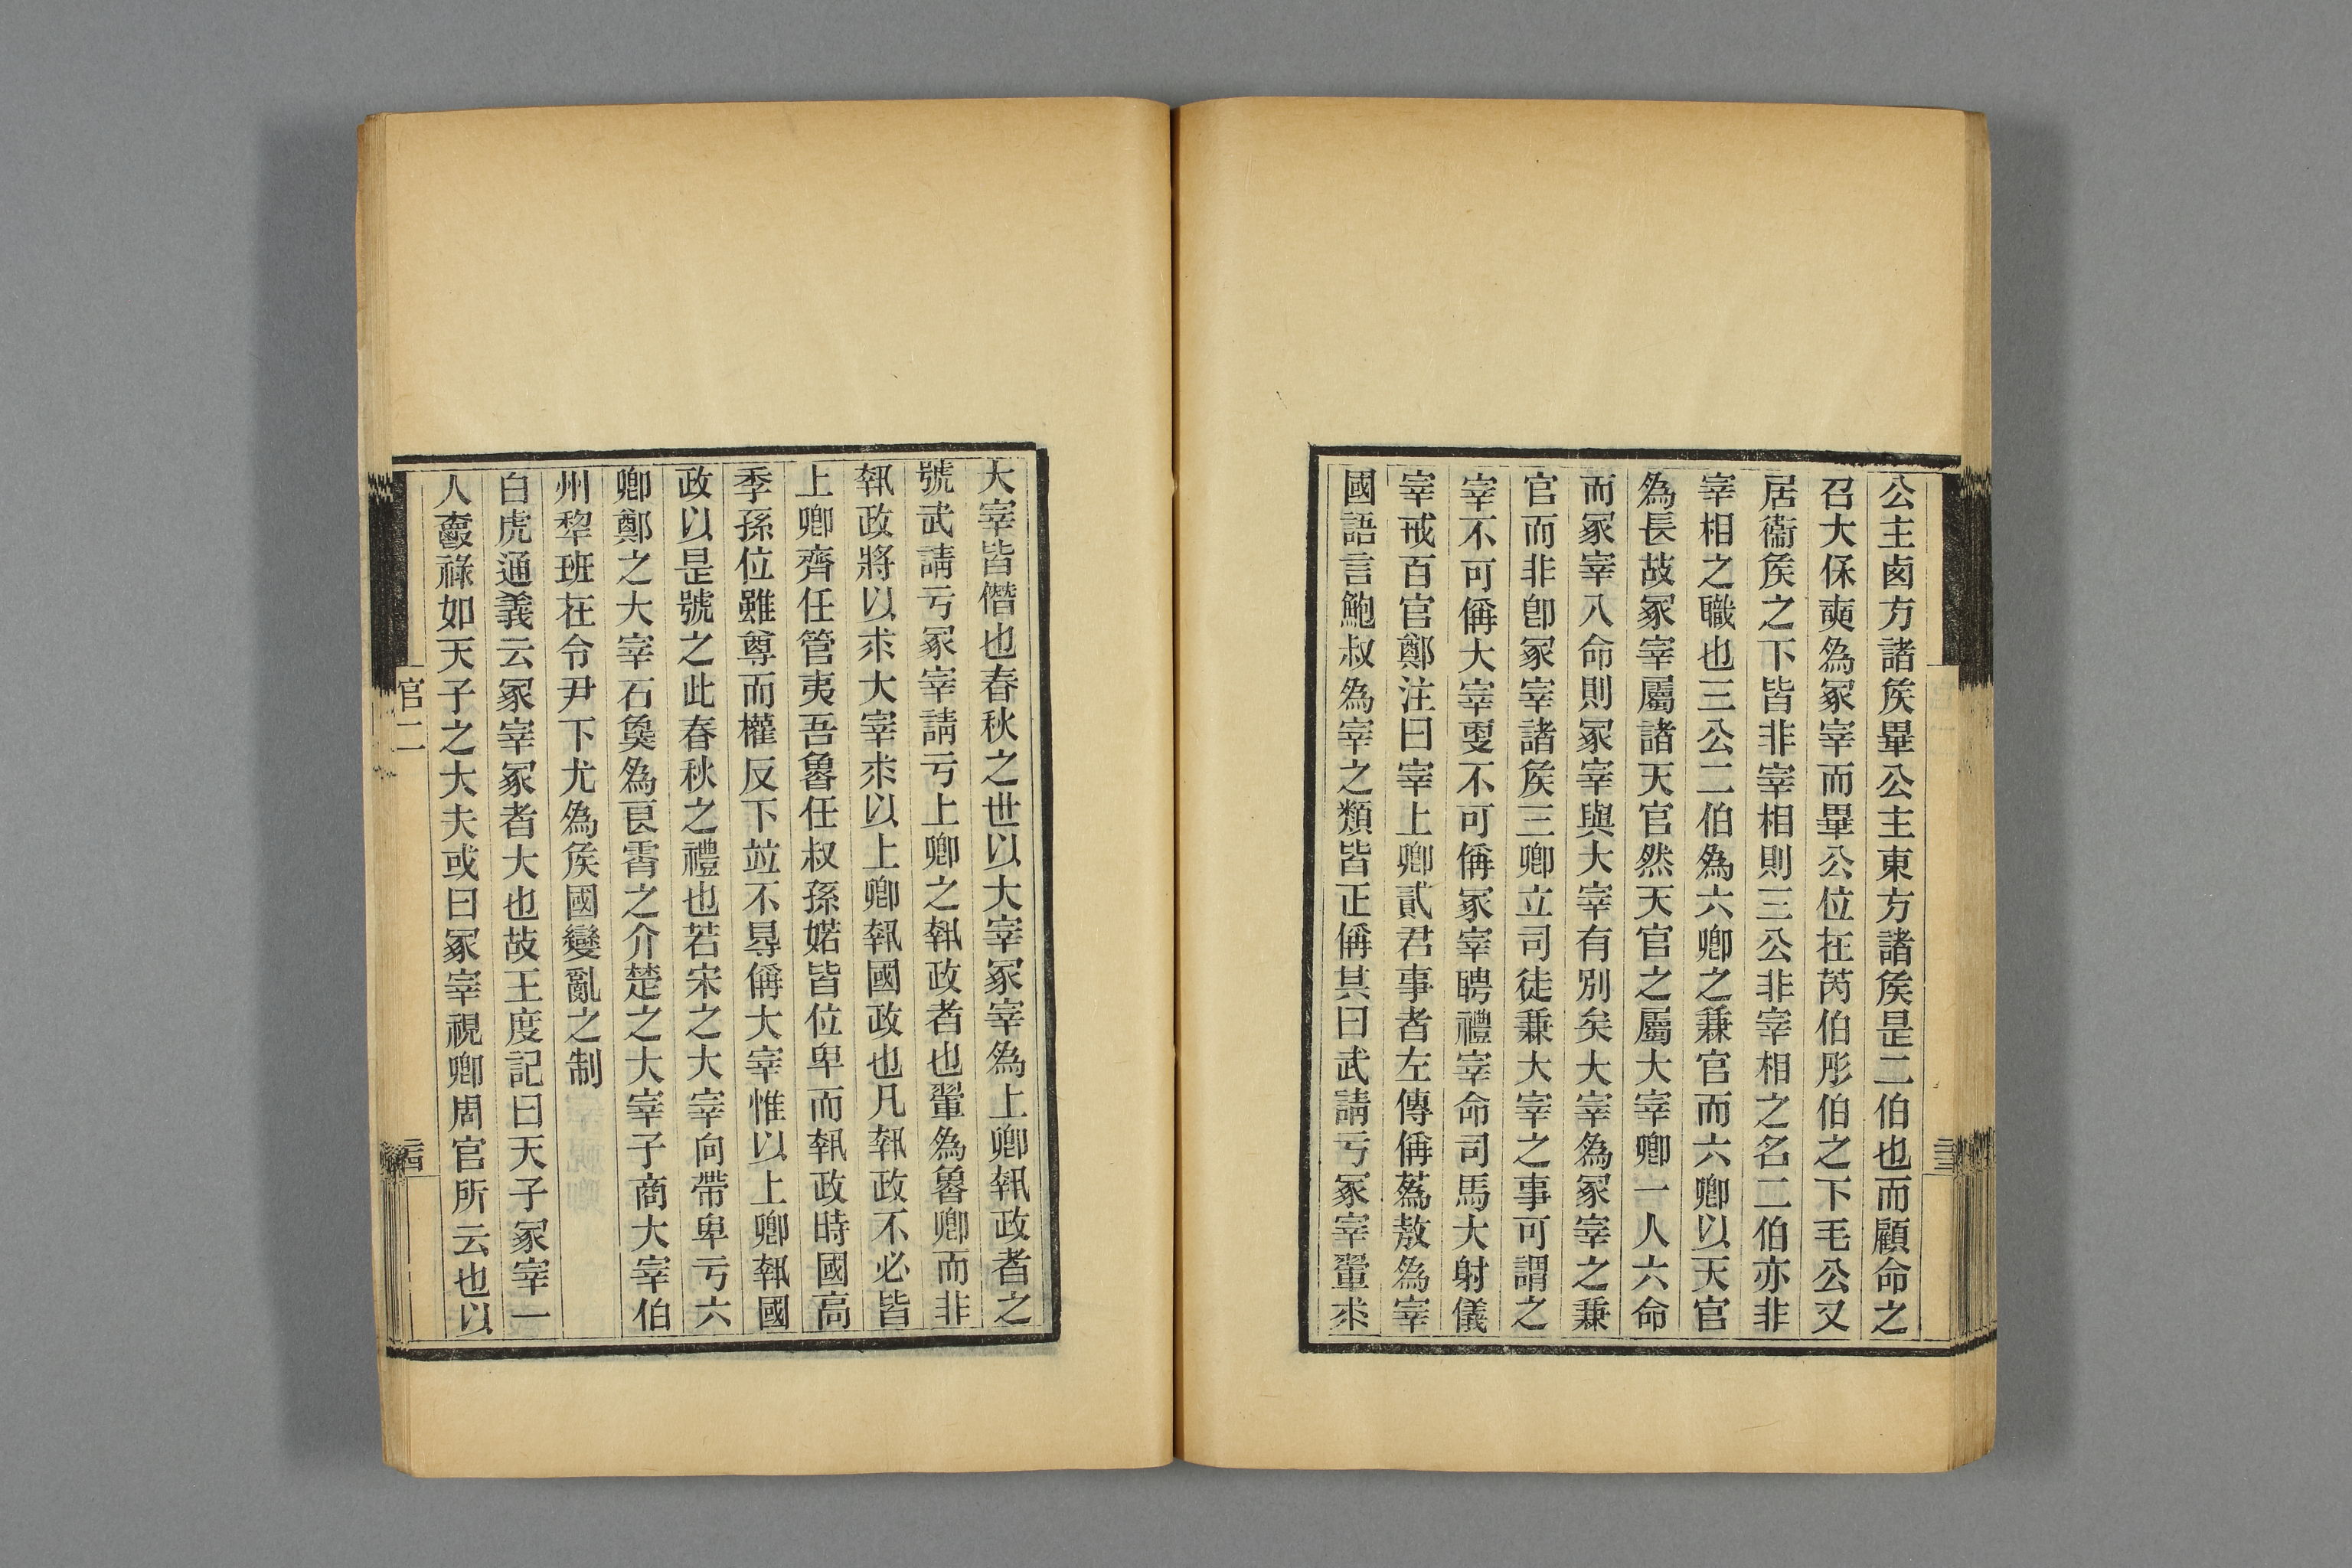 公主㢴方諸矦畢公主東方諸矦是二伯也而顧命之
召大保奭為冢宰而畢公位在芮伯彤伯之下毛公又
居衞矦之下皆非宰相則三公非宰相之名二伯亦非
宰相之職也三公二伯為六卿之兼官而六卿以天官
為長故冢宰屬諸天官然天官之屬大宰卿一人六命
而冢宰八命則冢宰與大宰有別矣大宰為冢宰之兼
官而非卽冢宰諸矦三卿立司徒兼大宰之事可謂之
宰不可偁大宰㪅不可偁冢宰聘禮宰命司馬大射儀
宰戒百官鄭注曰宰上卿貳君事者左傳偁蒍敖為宰
國語言鮑叔為宰之類皆正偁其曰武請亏冢宰翬求
大宰皆僭也春秋之世以大宰冢宰為上卿執政者之
號武請亏冢宰請亏上卿之執政者也翬為魯卿而非
執政將以求大宰求以上卿執國政也凡執政不必皆
上卿齊任管夷吾魯任叔孫婼皆位卑而執政時國高
季孫位雖尊而權反下竝不㝵偁大宰惟以上卿執國
政以是號之此春秋之禮也若宋之大宰向帶卑亏六
卿鄭之大宰石㚟為良霄之介楚之大宰子商大宰伯
州犂班在令尹下尤為矦國變亂之制
白虎通義云冢宰冢者大也故王度記曰天子冢宰一
人爵祿如天子之大夫或曰冢宰視卿周官所云也以
官二